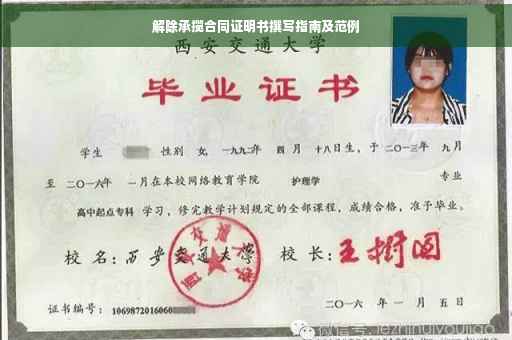 解除承揽合同证明书撰写指南及范例
西安交通大学
毕业证书
学生 性别 女,一九九二年 四月 十八日生,于 二〇一三年 九月
至 二〇一六年 一月在本校网络教育学院 护理学 专业
高中起点专科 学习,修完教学计划规定的全部课程,成绩合格,准予毕业。
校 名:西安交通大学 校 长:王树国
西安交通大学
证书编号:1069872016060
二〇一六 年 一 月 五 日
微信号:jezhinuiyoujiao